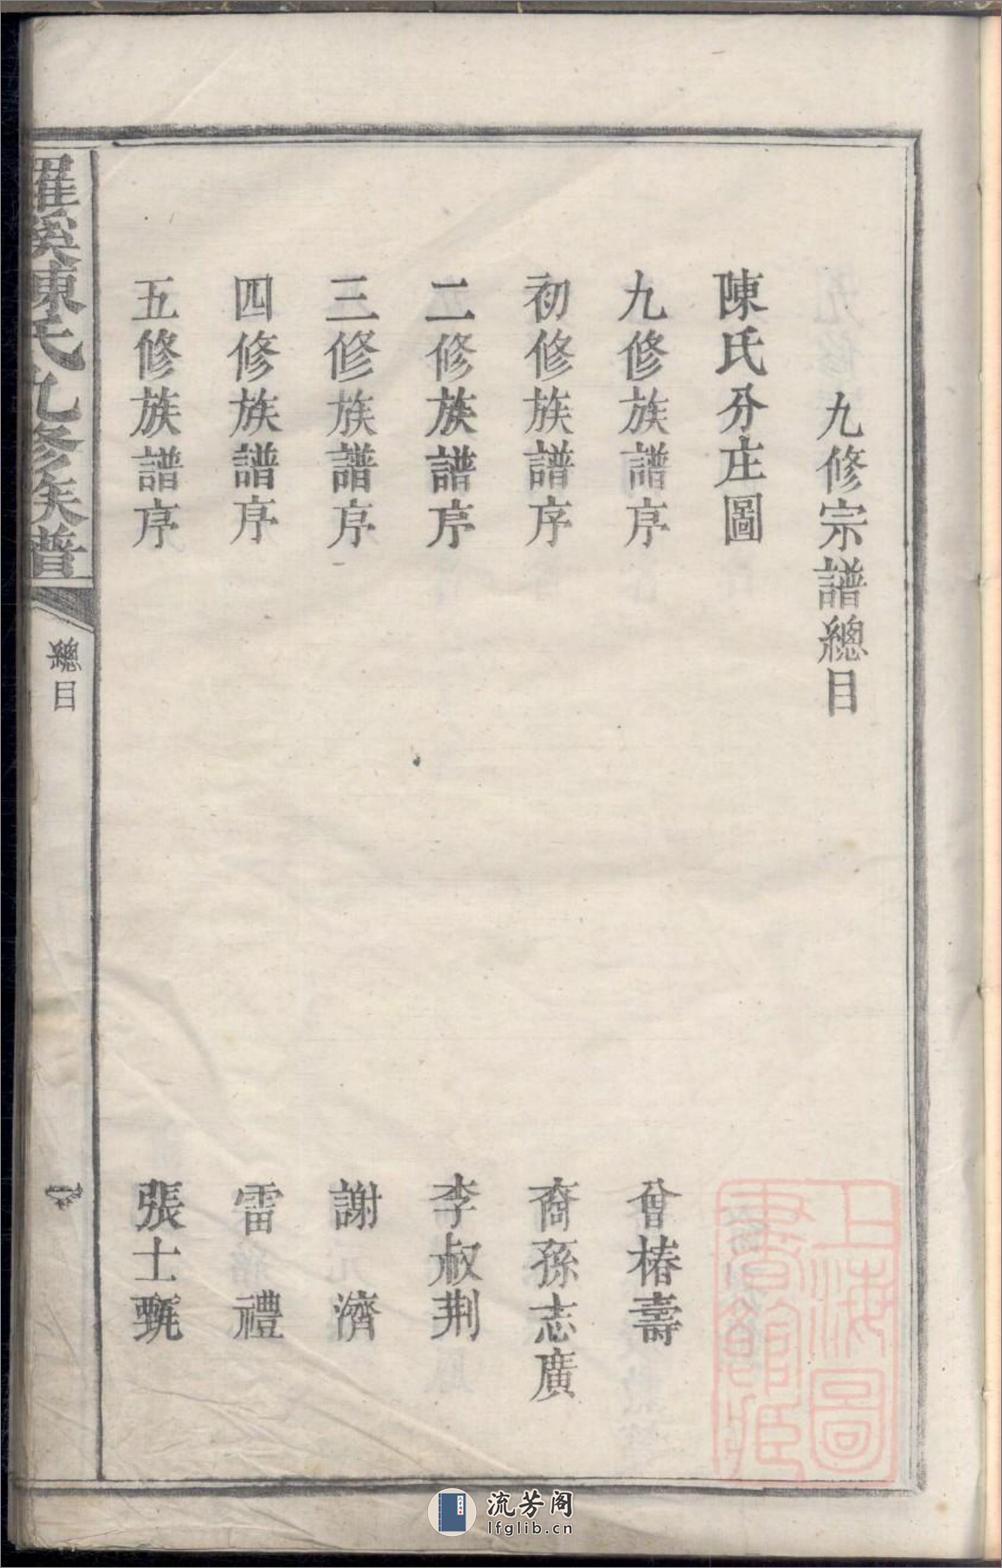 九修宗譜總目
陳氏分庄圖
九修族譜序 曾椿壽
初修族譜序 裔孫志廣
二修族譜序 李叔荆
三修族譜序 謝濟
四修族譜序 雷禮
五修族譜序 張士甄
羅溪陳氏九修族譜
總目
一
上海圖書館藏
流芳阁
lfglib.cn